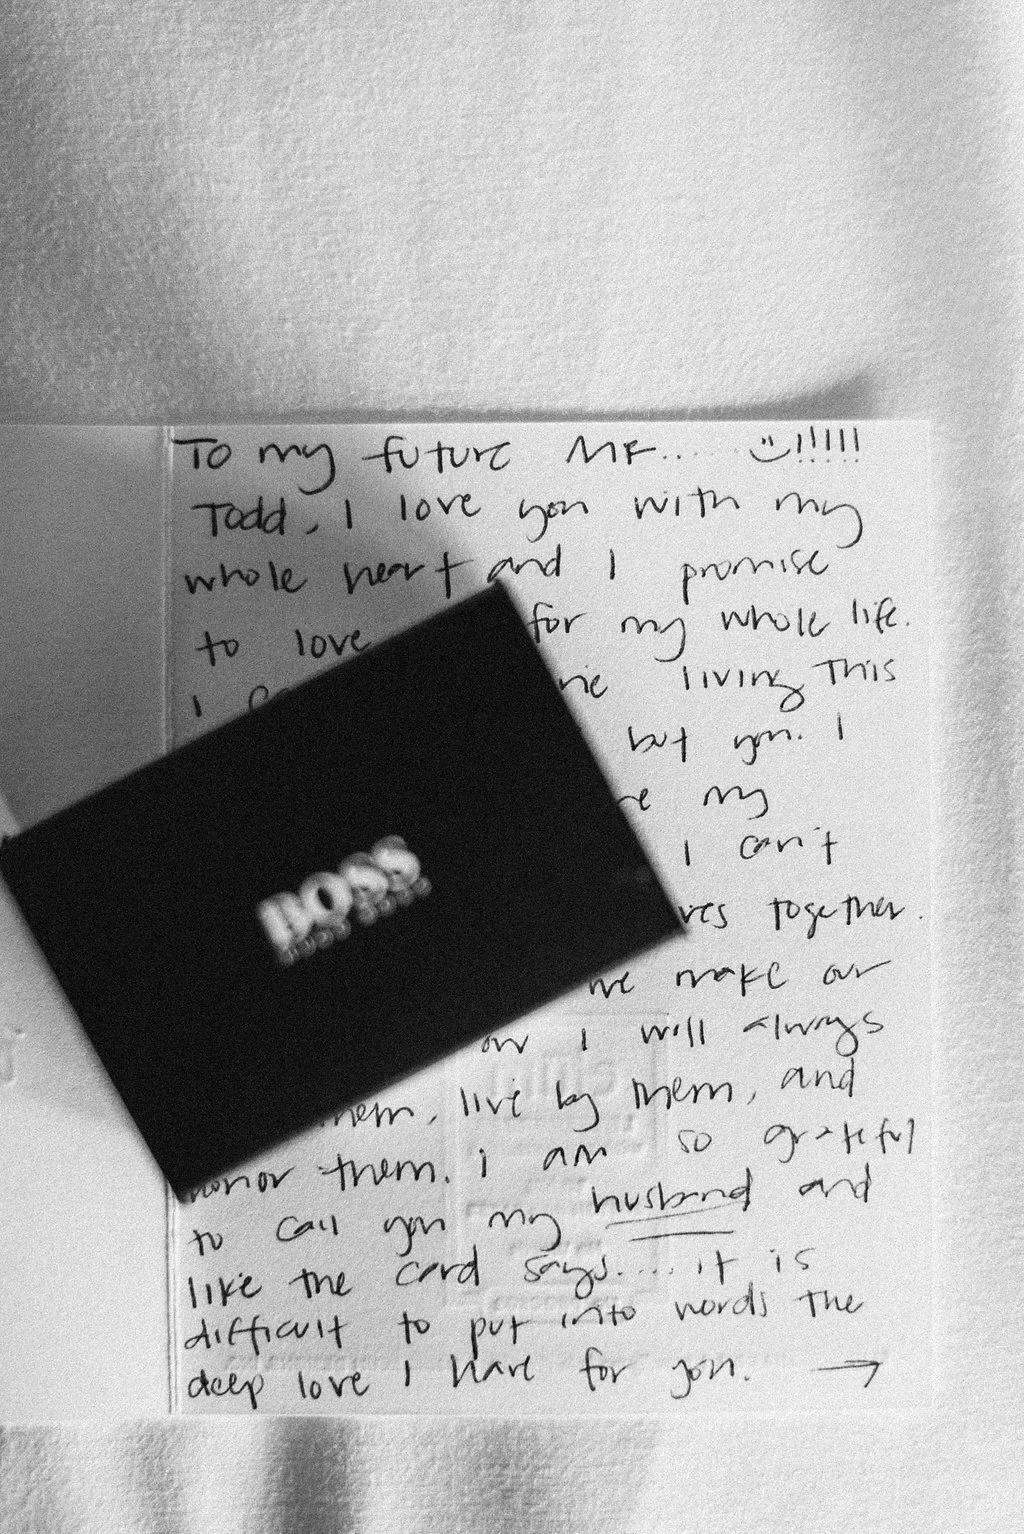 To my future Mr..... :)!!!!!
Todd, I love you with my
whole heart and I promise
to love for my whole life.
I living this
but you. I
my
I can't
together.
we make our
I will always
live by them, and
honor them. I am so grateful
to call you my husband and
like the card says.... it is
difficult to put into words the
deep love I have for you. →
BOSS
HUGO BOSS